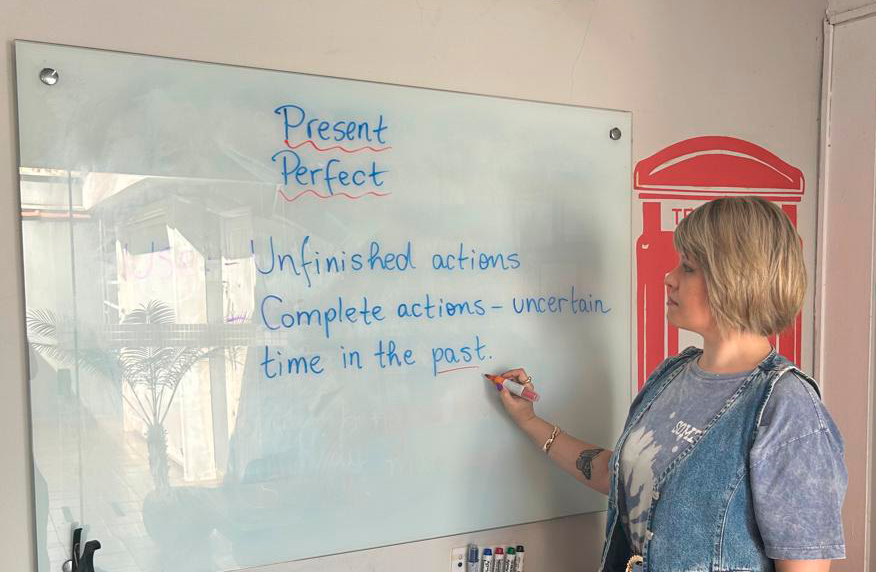 Present
Perfect
Use: - Unfinished actions
Complete actions – uncertain
time in the past.